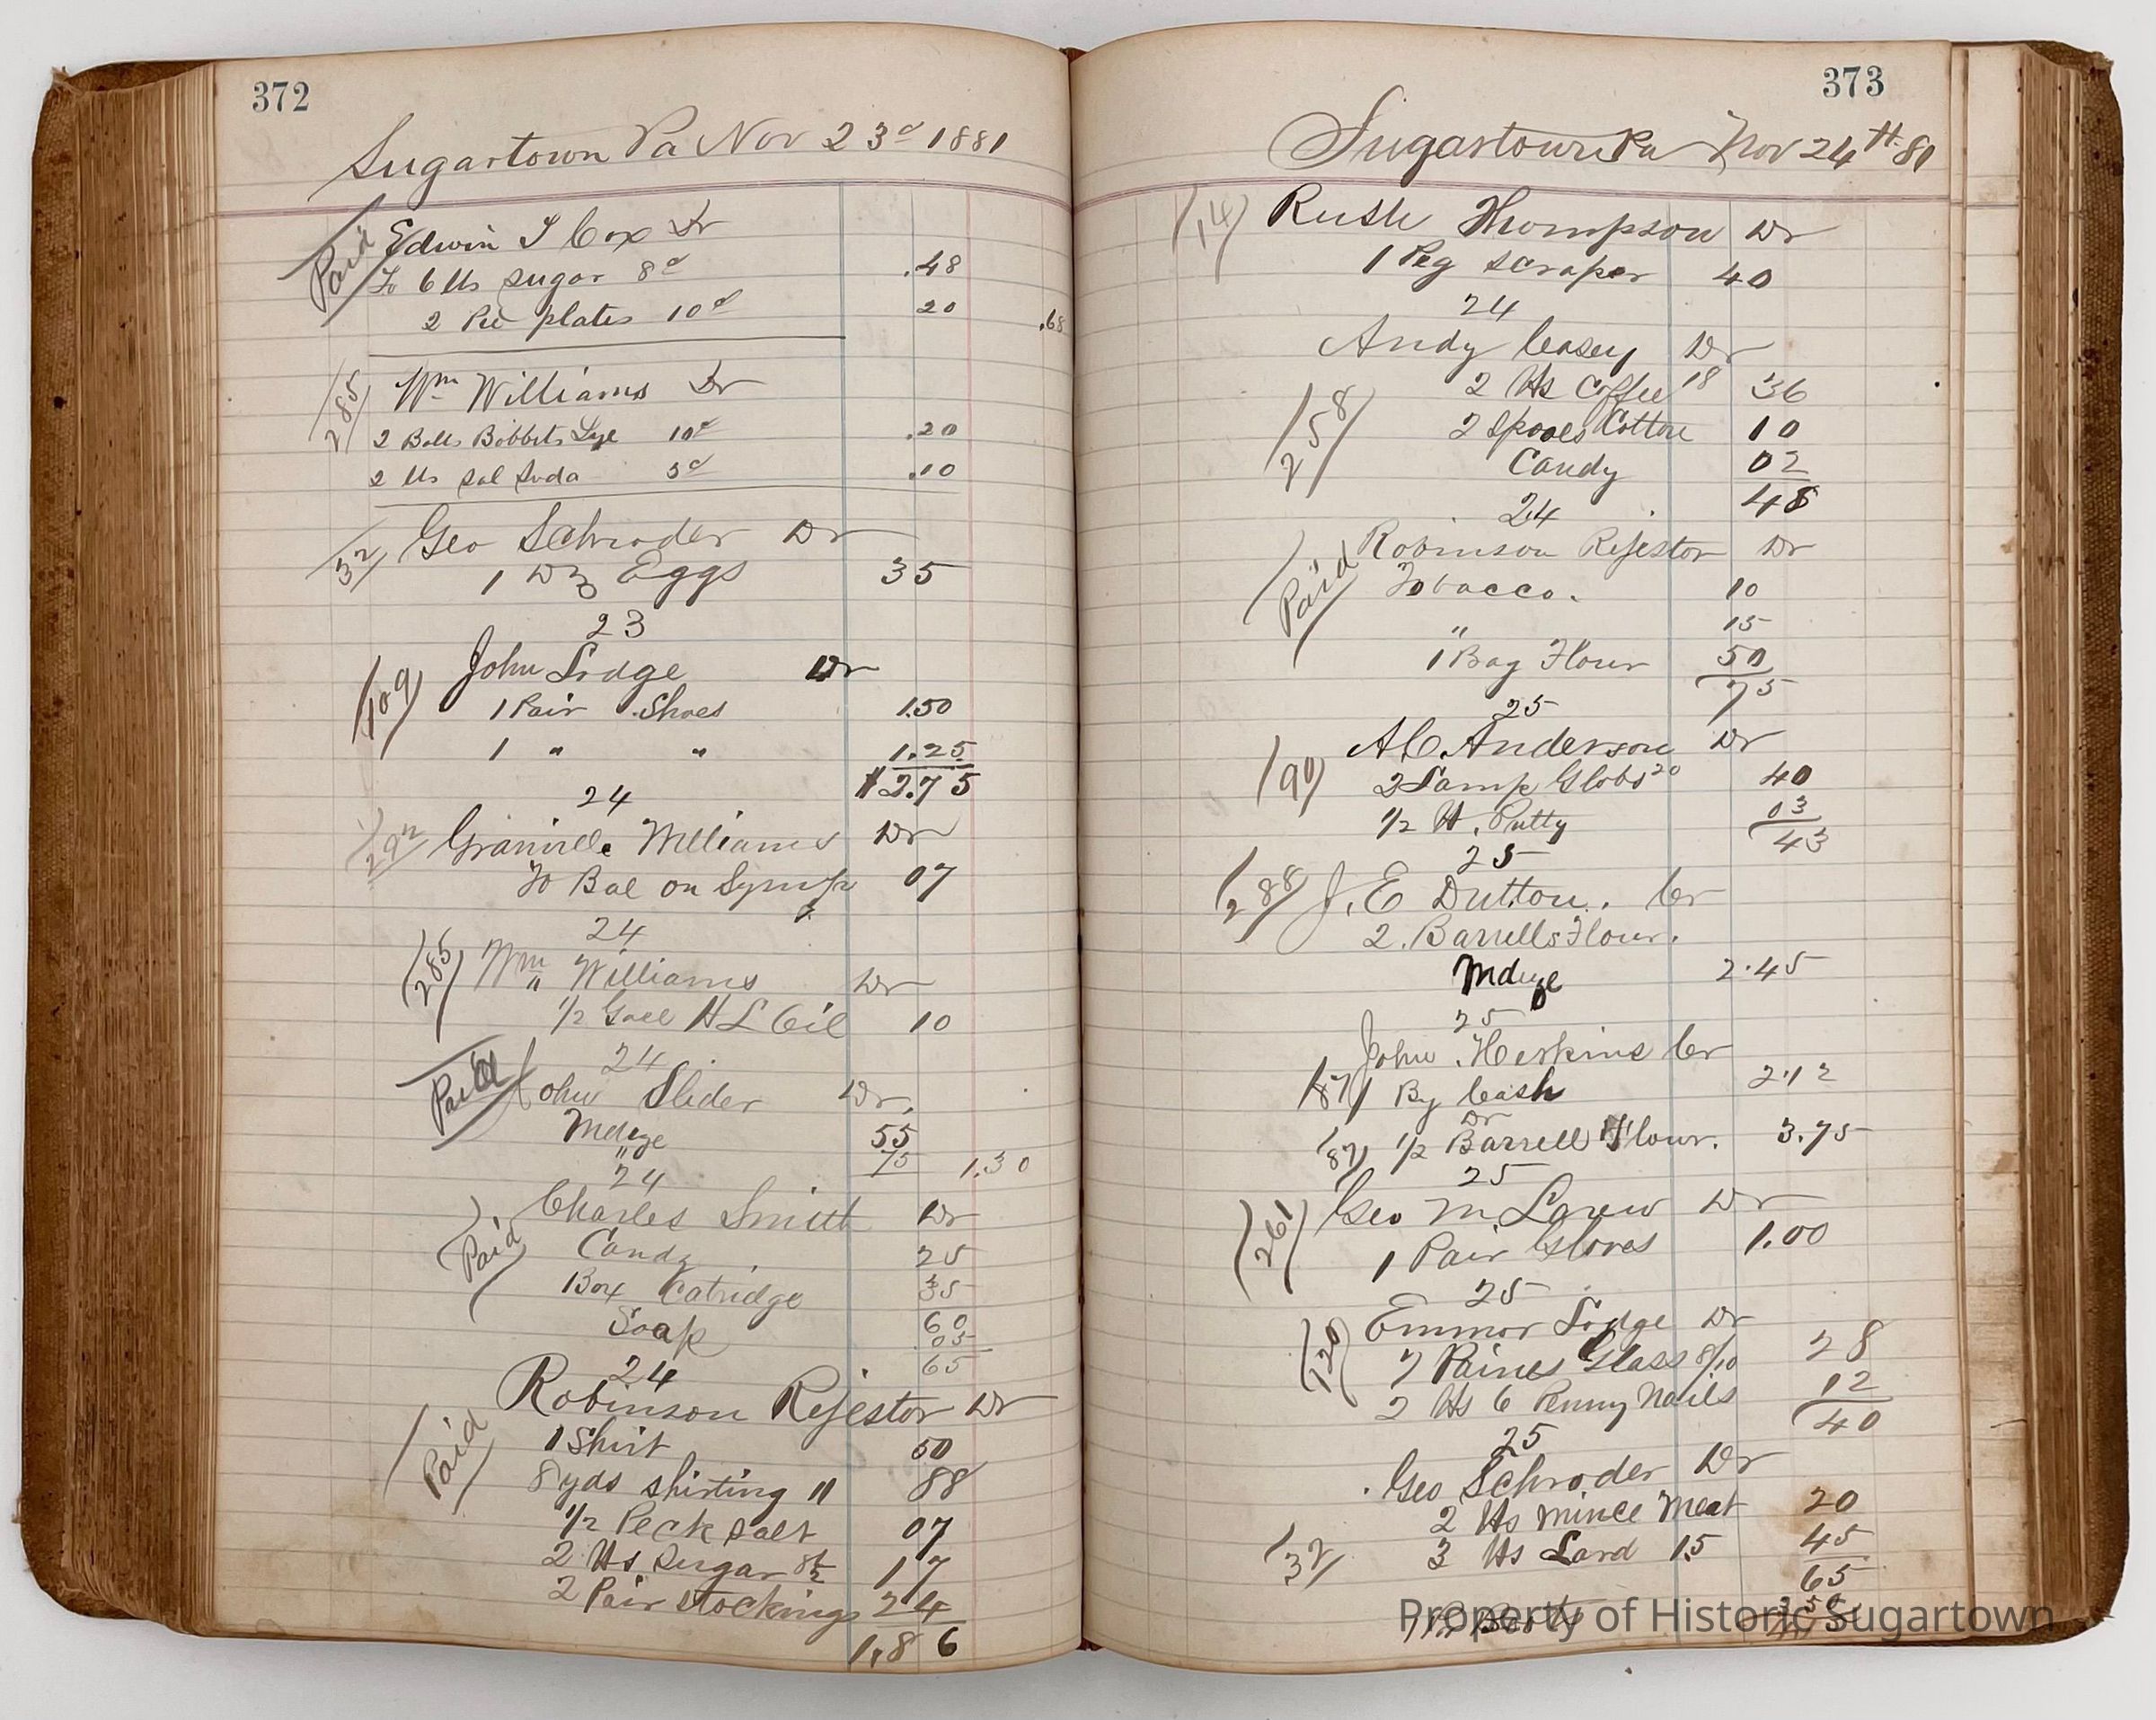 372
Sugartown Pa Nov 23d 1881
Paid
Edwin T Cox Dr
To 6 lbs sugar 8c .48
2 Pie plates 10c 20 .68
285
Wm Williams Dr
2 Balls Bobbits Lye 10c .20
2 lbs Sal Soda 5c .10
32
Geo Schroder Dr
1 Dz Eggs 35
23
109
John Lodge Dr
1 Pair Shoes 1.50
1 " " 1.25
$2.75
24
Granville Williams Dr
To Bal on Syrup 07
24
285
Wm Williams Dr
1/2 Gall H L Oil 10
24
Paid
John Slider Dr.
Mdze 55
" 75 1.30
24
Paid
Charles Smith Dr
Candy 25
Box Catridge 35
60
Soap 05
65
24
Paid
Robinson Rejestor Dr
1 Shirt 50
8 yds shirting 11 88
1/2 Peck Salt 07
2 lbs Sugar 8 1/2 17
2 Pair Stockings 24
1,86
373
Sugartown Pa Nov 24th 81
14
Ruth Thompson Dr
1 Peg scraper 40
24
Andy Casey Dr
258
2 lbs Coffee 18 36
2 Spooes Cotton 10
Candy 02
48
24
Paid
Robinson Rejestor Dr
Tobacco. 10
" 15
1 Bag Flour 50
75
25
90
A C. Anderson Dr
2 Lamp Globs 20 40
1/2 lb. Putty 03
43
25
288
J. E Dutton. Cr
2. Barrells Flour.
Mdze 2.45
25
John Herkins Cr
87 By Cash 2.12
Dr
87 1/2 Barrell Flour. 3.75
25
261
Geo M. Larew Dr
1 Pair Gloves 1.00
25
120
Emmor Lodge Dr
7 Paines Glass 8/10 28
2 lbs 6 Penny Nails 12
40
25
Geo Schroder Dr
2 lbs Mince Meat 20
32
3 lbs Lard 15 45
65
Property of Historic Sugartown